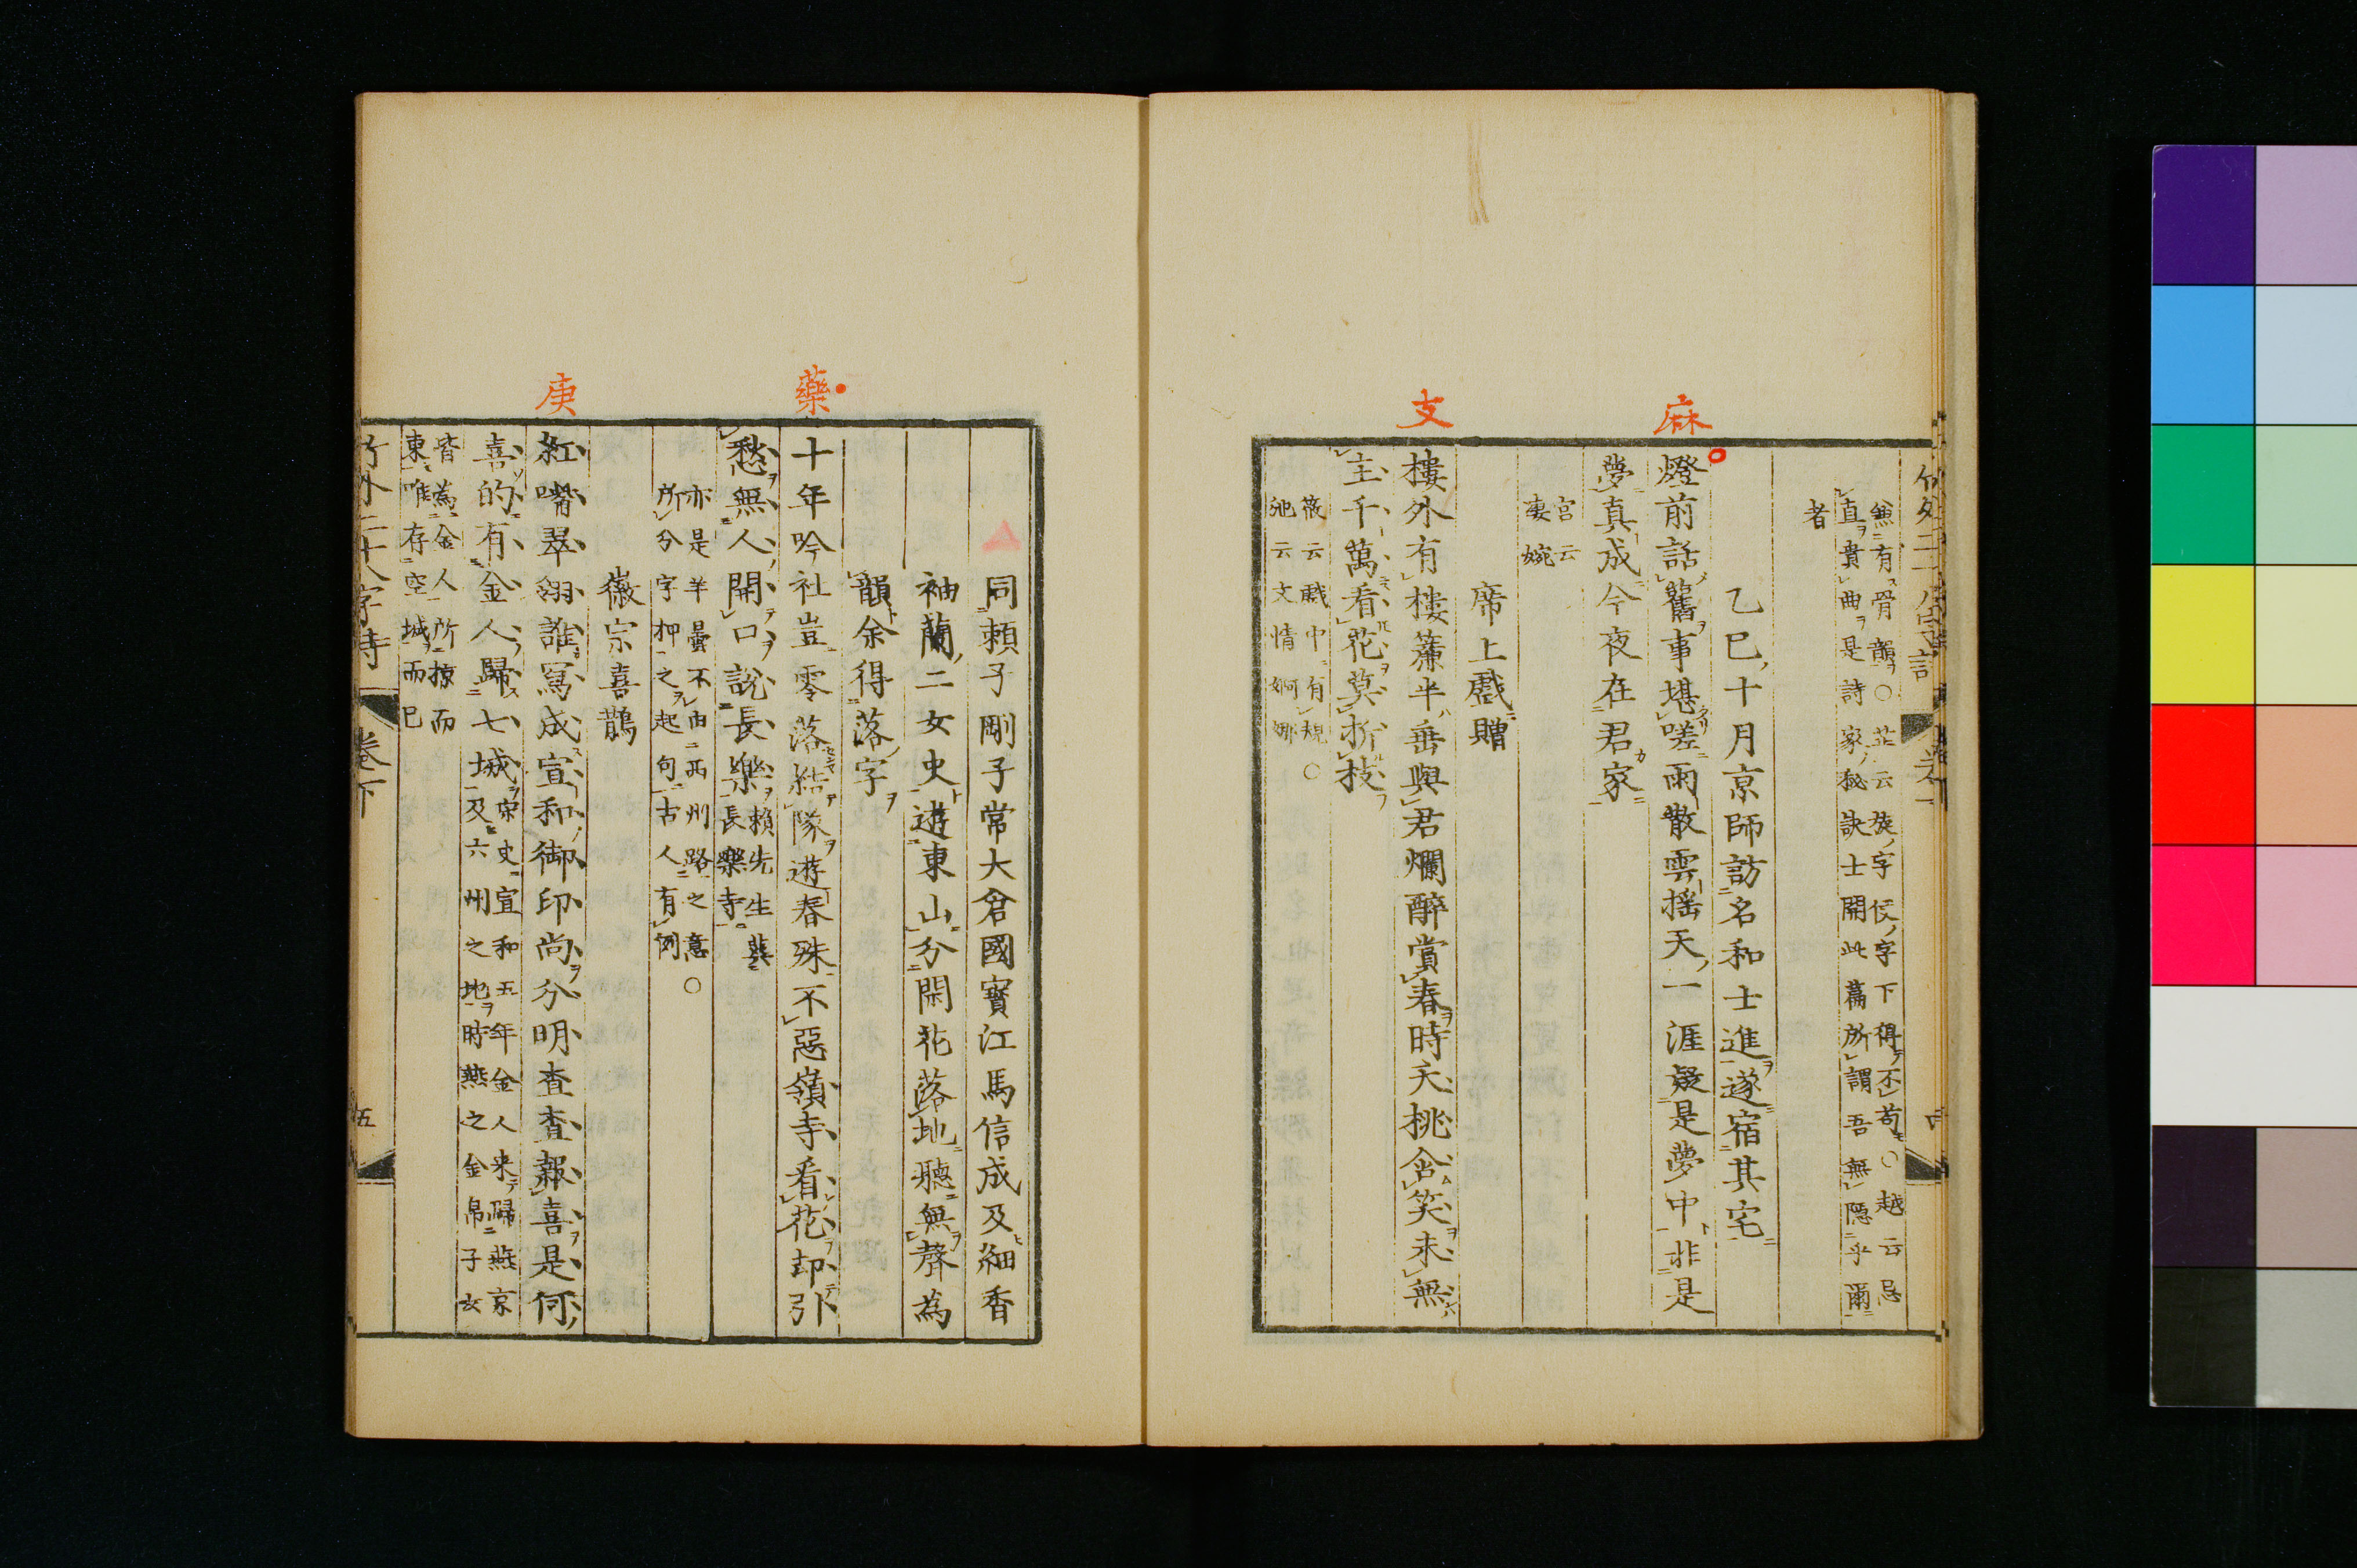 無有骨韻○花云族字侵字下得不苟○越云忌
直貴曲是詩家秘訣士開此篇所謂吾無隱乎爾
者
乙巳十月京師訪名和士進遂宿其宅
麻
燈前話舊事堪嗟雨散雲搖天一涯疑是夢中非是
夢真成今夜在君家
宮云
悽婉
席上戲贈
支
樓外有樓簾半垂與君爛醉賞春時夭桃含笑未無
主千萬看花莫折枝
薇云戲中有規○
池云文情婀娜
同賴子剛子常大倉國寶江馬信成及細香
袖蘭二女史遊東山分閑花落地聽無聲為
韻余得落字
藥
十年吟社豈零落結隊遊春殊不惡嶺寺看花却引
愁無人開口說長樂
賴先生葬
長樂寺
亦是羊曇不由西州路之意○
所分字押之起句古人有例
徽宗喜鵲
庚
紅嘴翠翎誰寫成宣和御印尚分明查查報喜是何
喜的有金人歸七城
宋史宣和五年金人来歸燕京
及六州之地時燕之金帛子女
皆為金人所掠而
東唯存空城而已
竹外二十八字詩
卷下
五